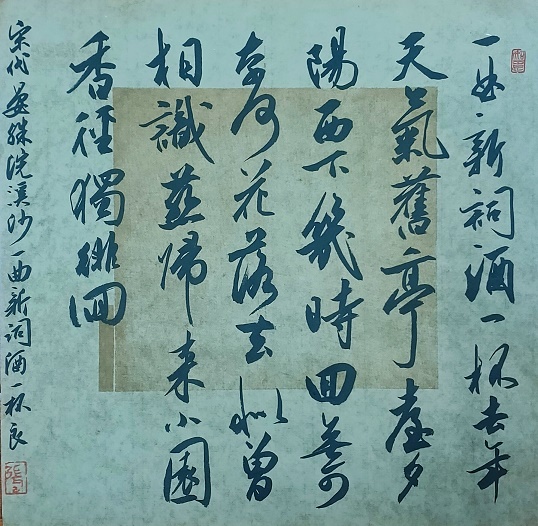 一曲新詞酒一杯去年
天氣舊亭臺夕
陽西下幾時回無可
奈何花落去似曾
相識燕歸來小園
香徑獨徘徊
宋代晏殊浣溪沙一曲新詞酒一杯良